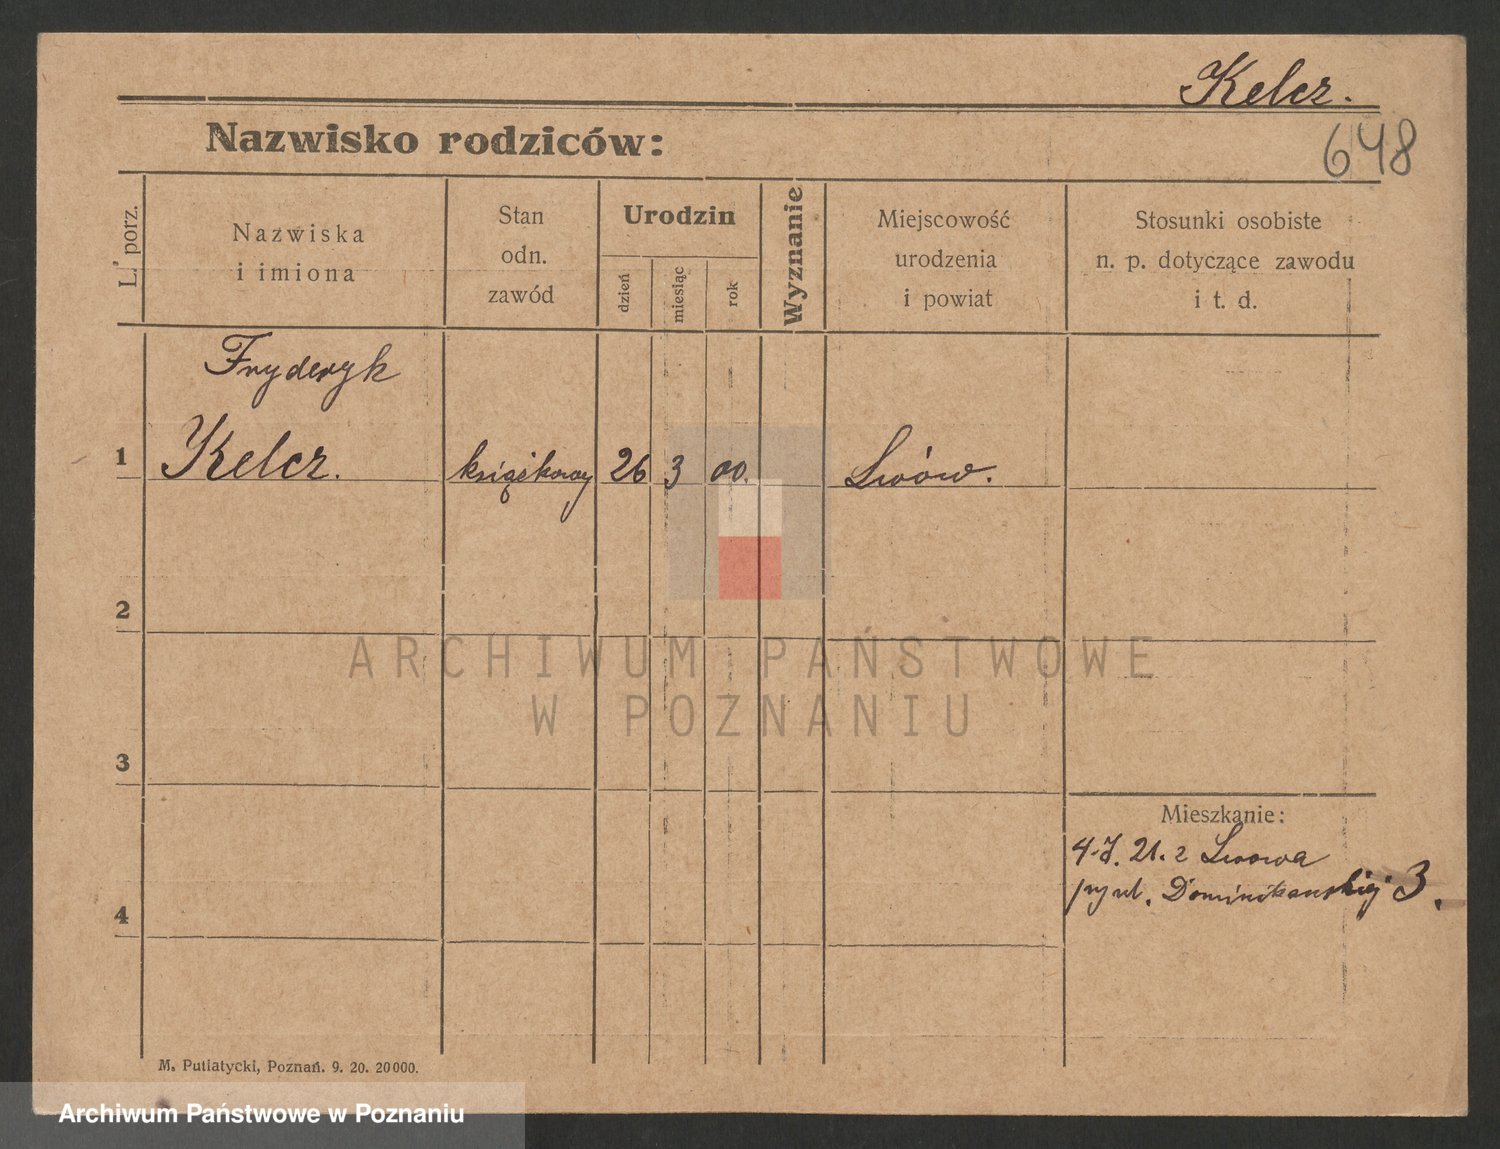 Kelcz.
648
Nazwisko rodziców:
L. porz.
Nazwiska
i imiona
Stan
odn.
zawód
Urodzin
dzień
miesiąc
rok
Wyznanie
Miejscowość
urodzenia
i powiat
Stosunki osobiste
n. p. dotyczące zawodu
i t. d.
Fryderyk
1 Kelcz. książkowy 26 3 00. Lwów.
2
ARCHIWUM PAŃSTWOWE
W POZNANIU
3
Mieszkanie:
21. z Lwowa
Dominikańskiej 3.
4
M. Putiatycki, Poznań. 9. 20. 20000.
Archiwum Państwowe w Poznaniu